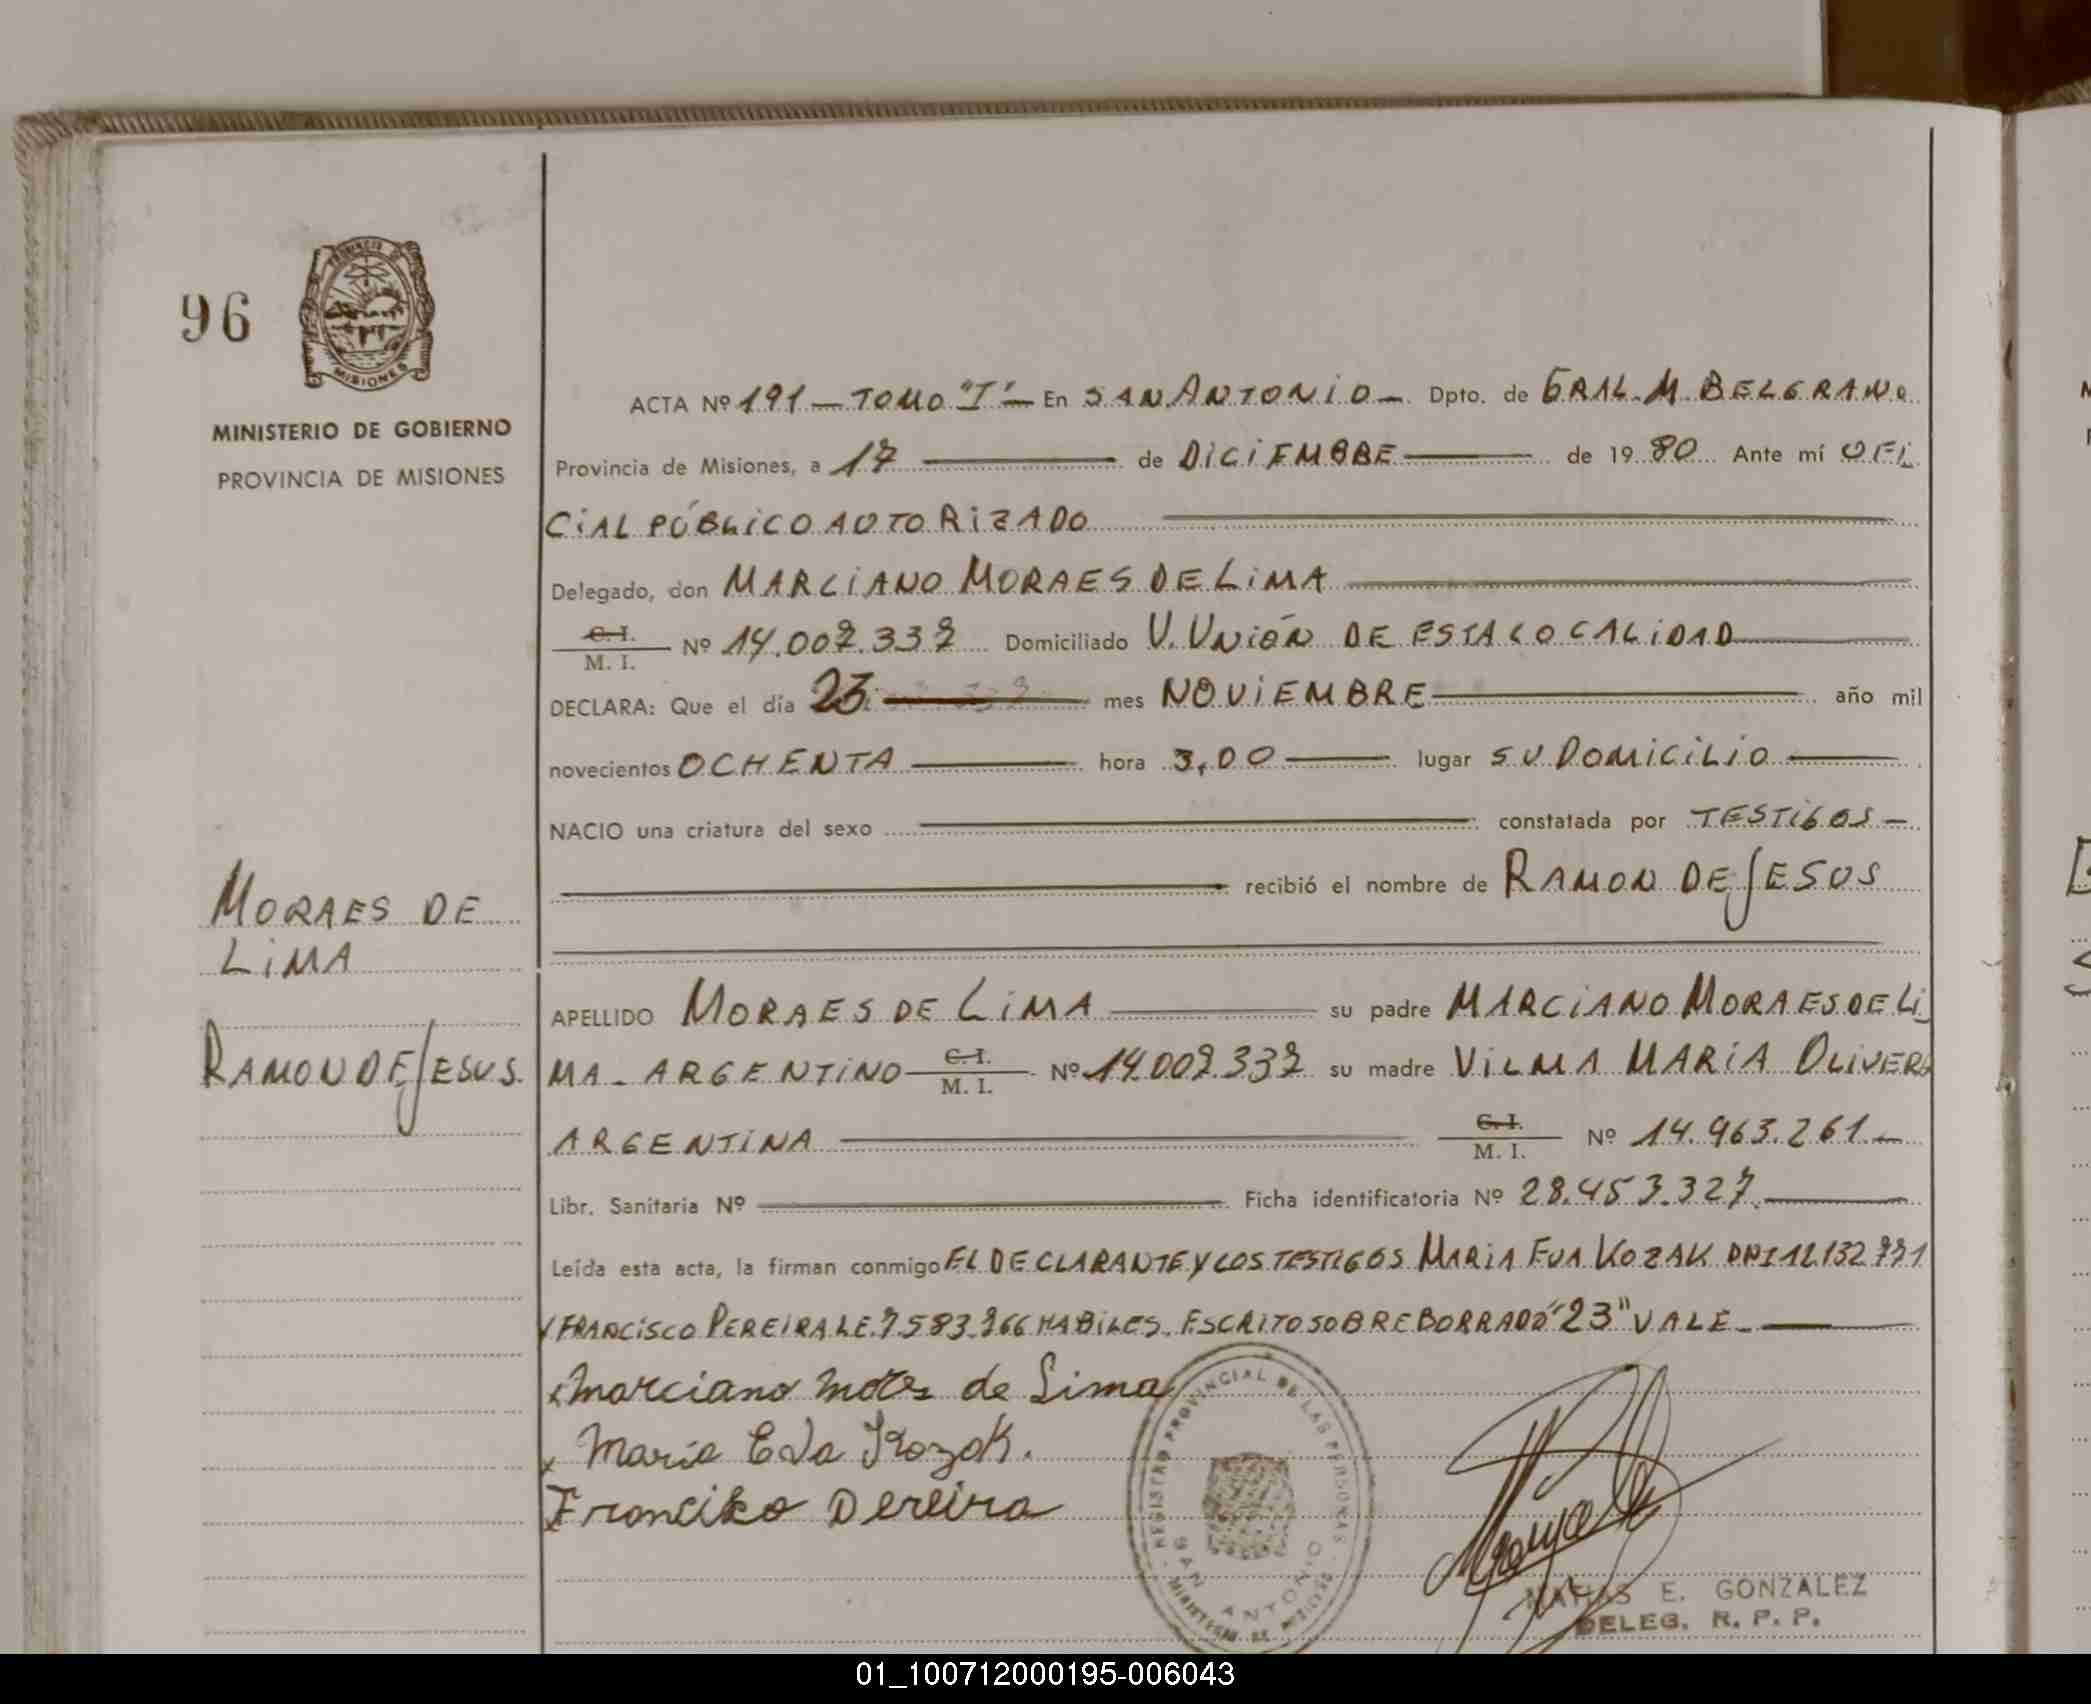 96
PROVINCIA DE
MISIONES
MINISTERIO DE GOBIERNO
PROVINCIA DE MISIONES
MORAES DE
LIMA
RAMON DE JESUS.
ACTA Nº 191 — TOMO "I" — En SAN ANTONIO — Dpto. de GRAL. M. BELGRANO
Provincia de Misiones, a 17 de DICIEMBRE de 19 80 Ante mí OFI
CIAL PÚBLICO AUTORIZADO
Delegado, don MARCIANO MORAES DE LIMA
C. I.
M. I. Nº 14.007.337 Domiciliado V. UNIÓN DE ESTA LOCALIDAD
DECLARA: Que el día 23 mes NOVIEMBRE año mil
novecientos OCHENTA hora 3,00 lugar SU DOMICILIO
NACIO una criatura del sexo constatada por TESTIGOS —
recibió el nombre de RAMON DE JESUS
APELLIDO MORAES DE LIMA su padre MARCIANO MORAES DE LI
MA - ARGENTINO C. I. M. I. Nº 14.007.337 su madre VILMA MARIA OLIVERA
ARGENTINA C. I. M. I. Nº 14.963.261 —
Libr. Sanitaria Nº Ficha identificatoria Nº 28.453.327.
Leída esta acta, la firman conmigo EL DECLARANTE Y LOS TESTIGOS MARIA EVA KOZAK DNI 12.132.771
Y FRANCISCO PEREIRA LE. 7.583.766 HABILES. ESCRITO SOBRE BORRADO "23" VALE —
Marciano de Lima
Maria Eva Kozak.
Francisko Pereira
REGISTRO PROVINCIAL DE LAS PERSONAS
SAN ANTONIO
E. GONZALEZ
DELEG. R. P. P.
01_100712000195-006043